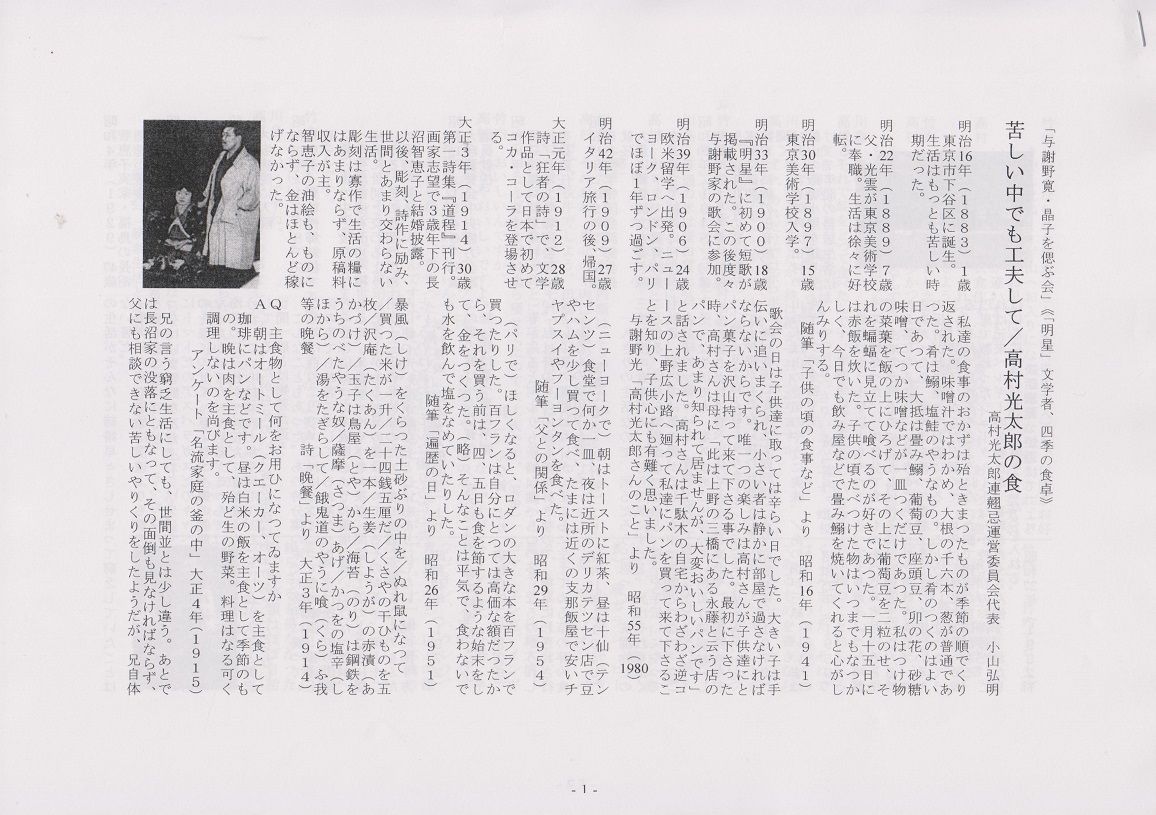 「与謝野寛・晶子を偲ぶ会」《「明星」文学者、四季の食卓》
苦しい中でも工夫して／高村光太郎の食
高村光太郎連翹忌運営委員会代表　小山弘明
明治16年（1883）1歳
東京市下谷区に誕生。
生活はもっとも苦しい時
期だった。
明治22年（1889）7歳
父・光雲が東京美術学校
に奉職。生活は徐々に好
転。
明治30年（1897）15歳
東京美術学校入学。
明治33年（1900）18歳
『明星』に初めて短歌が
掲載された。この後度々
与謝野家の歌会に参加。
明治39年（1906）24歳
欧米留学へ出発。ニュー
ヨーク、ロンドン、パリ
でほぼ1年ずつ過ごす。
明治42年（1909）27歳
イタリア旅行の後、帰国。
大正元年（1912）28歳
詩「狂者の詩」で、文学
作品として日本で初めて
コカ・コーラを登場させ
る。
大正3年（1914）30歳
第一詩集『道程』刊行。
画家志望で3歳年下の長
沼智恵子と結婚披露。
以後、彫刻、詩作に励み、
世間とあまり交わらない
生活。
彫刻は寡作で生活の糧に
はあまりならず、原稿料
収入が主。
智恵子の油絵も、ものに
ならず、金はほとんど稼
げなかった。
私達の食事のおかずは殆ときまったものが季節の順でくり
返された。味噌汁ではわかめ、大根の千六本、葱が普通であ
つた。肴は鰯、塩鮭のやうなもの。しかし肴のつくのはよい
日であつて、大抵は畳み鰯、葡萄豆、座頭豆、卯の花、砂糖
味噌、てつか味噌などが一皿つくだけであつた。私はつけ物
の菜葉を飯の上にひろげて、その上に葡萄豆を二粒のせ、そ
れを蝙蝠に見立てて喰べるのが好きであつた。一月十五日に
は赤飯を炊いた。子供の頃たべつけた物はいつまでもなつか
しく、今日でも飲み屋などで畳み鰯を焼いてくれると心がし
んみりする。
随筆「子供の頃の食事など」より　昭和16年（1941）
歌会の日は子供達に取っては辛らい日でした。大きい子は手
伝いに追いまくられ、小さい者は静かに部屋で過さなければ
ならないからです。唯一つの楽しみは高村さんが子供達にと
パン菓子を沢山持って来て下さる事でした。最初に下さった
時、高村さんは母に「此は上野の三橋にある永藤と云う店の
パンで、あまり知られて居ませんが、大変おいしいパンです」
と話されました。高村さんは千駄木の自宅からわざわざ逆コ
ースの上野広小路へ廻って私達にパンを買って来て下さるこ
とを知り、子供心にも有難く思いました。
与謝野光「高村光太郎さんのこと」より　昭和55年（1980）
（ニューヨークで）朝はトーストに紅茶、昼は十仙（テン
センツ）食堂で何か一皿、夜は近所のデリカテツセン店で豆
やハムを少し買つて食べ、たまには近くの支那飯屋で安いチ
ヤプスイやフーヨンタンを食べた。
随筆「父との関係」より　昭和29年（1954）
（パリで）ほしくなると、ロダンの大きな本を百フランで
買つたりした。百フランは自分にとつては高価な額だつたか
ら、それを買う前は、四、五日も食を節するような始末をし
て、金をつくつた。（略）そんなことは平気で、食わないで
も水を飲んで塩をなめていたりした。
随筆「遍歴の日」より　昭和26年（1951）
暴風（しけ）をくらつた土砂ぶりの中を／ぬれ鼠になつて
／買つた米が一升／二十四銭五厘だ／くさやの干ひものを五
枚／沢庵（たくあん）を一本／生姜（しようが）の赤漬（あ
かづけ）／玉子は鳥屋（とや）から／海苔（のり）は鋼鉄を
うちのべたやうな奴／薩摩（さつま）あげ／かつをの塩辛（し
ほから）／湯をたぎらして／餓鬼道のやうに喰（くら）ふ我
等の晩餐
詩「晩餐」より　大正3年（1914）
Q　主食物として何をお用ひになつてゐますか
A　朝はオートミール（クエーカー、オーツ）を主食として
珈琲にパンなどです。昼は白米の飯を主食として季節のも
の。晩は肉を主食として、殆ど生の野菜。料理はなる可く
調理しないのを尚びます。
アンケート「名流家庭の釜の中」大正4年（1915）
兄の言う窮乏生活にしても、世間並とは少し違う。あとで
は長沼家の没落にともなって、その面倒も見なければならず、
父にも相談できない苦しいやりくりをしたようだが、兄自体
- 1 -